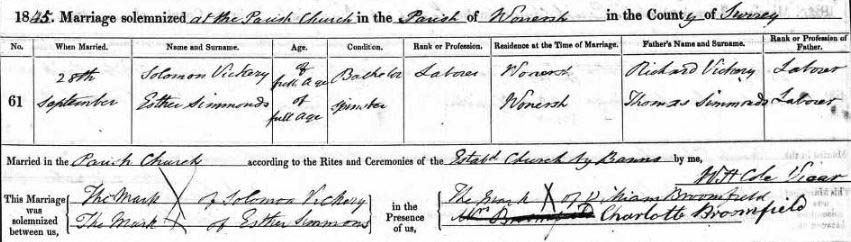 1845. Marriage solemnized at the Parish Church in the Parish of Wonersh in the County of Surrey
No. When Married. Name and Surname. Age. Condition. Rank or Profession. Residence at the Time of Marriage. Father's Name and Surname. Rank or Profession of Father.
61 28th September
Solomon Vickery of full age Bachelor Laborer Wonersh Richard Vickery Laborer
Esther Simmonds of full age Spinster Wonersh Thomas Simmonds Laborer
Married in the Parish Church according to the Rites and Ceremonies of the Estabd Church by Banns by me,
W H Cole Vicar
This Marriage was solemnized between us,
The Mark X of Solomon Vickery
The Mark X of Esther Simmons
in the Presence of us,
The Mark X of William Broomfield
Charlotte Broomfield